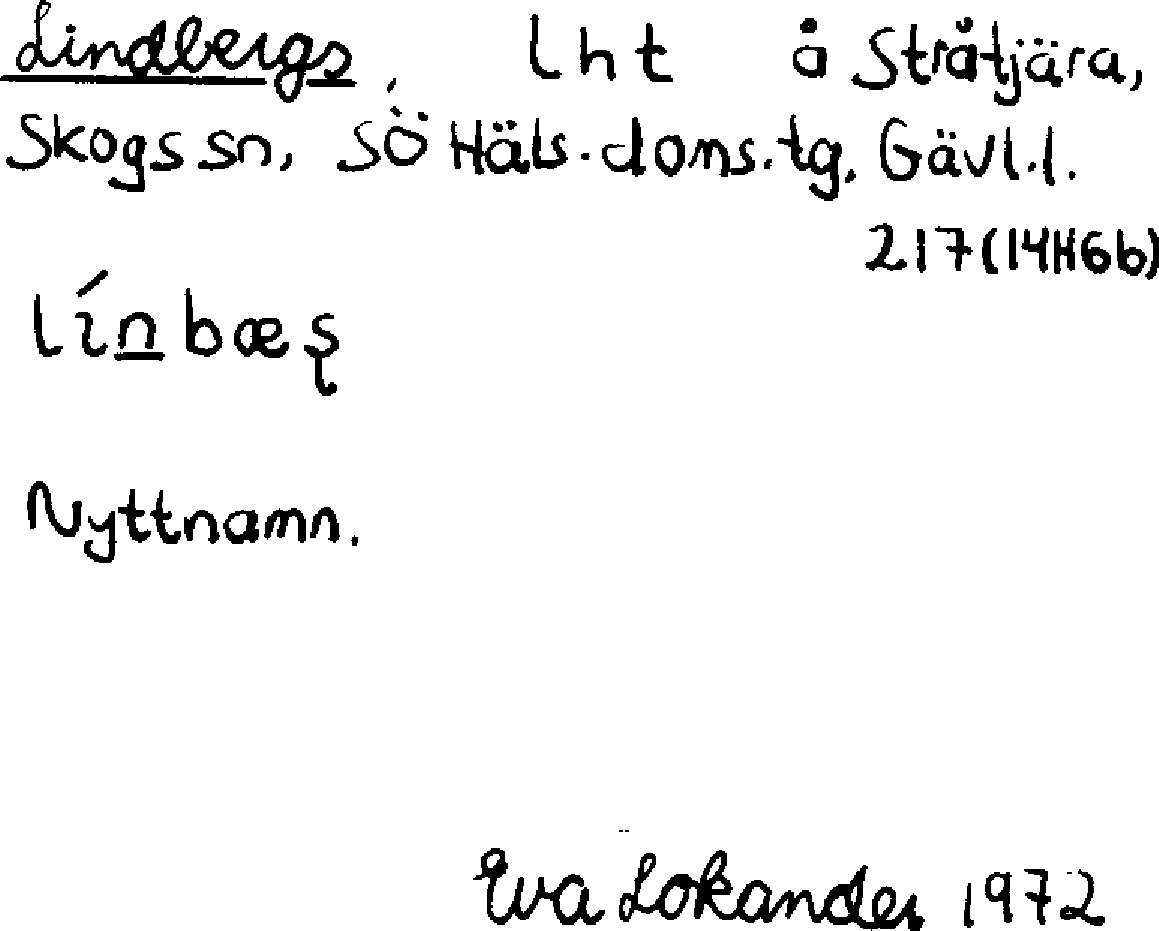 Lindbergs, lht å Stråtjära,
Skogs sn, SÖ Häls. doms. tg. Gävl.l.
217(14H6b)
lín̲bæʂ
Nyttnamn.
Eva Lokander 1972